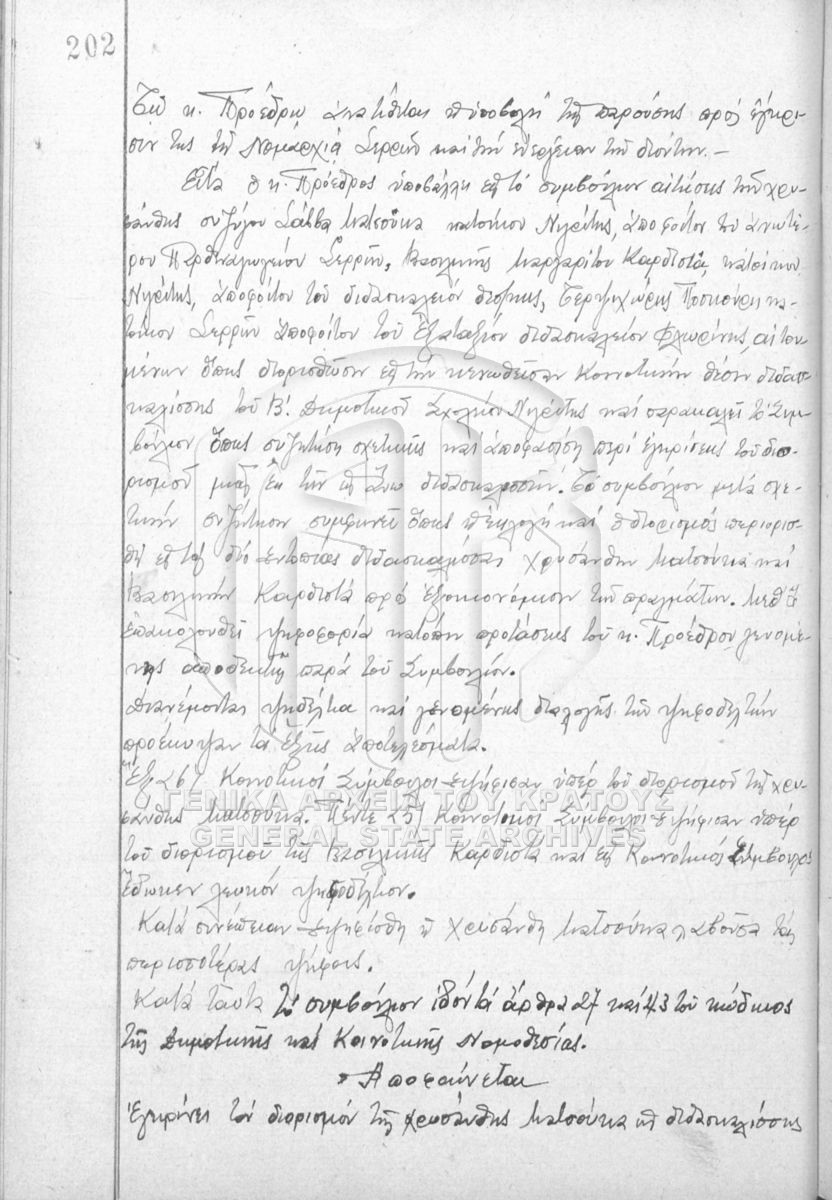 202
Τῷ κ. Προέδρῳ ἀνατίθεται ἡ ὑποβολή τῆς παρούσης πρός ἔγκρι-
σιν της τῇ Νομαρχίᾳ Σερρῶν καί τήν ἐνέργειαν τῶν δεόντων.-
Εἶτα ὁ κ. Πρόεδρος ὑποβάλλει εἰς τό συμβούλιον αἰτήσεις τῆς Χρυ-
σάνθης συζύγου Σάββα Ματσούκα κατοίκου Νιγρίτης, ἀποφοίτου τοῦ ἀνωτέ-
ρου Παρθεναγωγείου Σερρῶν, Βασιλικῆς Μαργαρίτου Καρδιστᾶ, κατοίκου
Νιγρίτης, ἀποφοίτου τοῦ διδασκαλείου, Τερψιχώρης κα-
τοίκου Σερρῶν ἀποφοίτου τοῦ Ἑξαταξίου διδασκαλείου Φλωρίνης, αἰτου-
μένων ὅπως διορισθῶσιν εἰς τήν κενωθεῖσαν Κοινοτικήν θέσιν διδασ-
καλίσσης τοῦ Β'. Δημοτικοῦ Σχολείου Νιγρίτης καί παρακαλεῖ τό Συμ-
βούλιον ὅπως συζητήσῃ σχετικῶς καί ἀποφασίσῃ περί ἐγκρίσεως τοῦ διο-
ρισμοῦ μιᾶς ἐκ τῶν ὡς ἄνω διδασκαλισσῶν. Τό συμβούλιον μετά σχε-
τικήν συζήτησιν συμφωνεῖ ὅπως ἡ ἐκλογή καί ὁ διορισμός περιορισ-
θῇ εἰς τάς δύο ἐντοπίας διδασκαλίσσας Χρυσάνθην Ματσούκα καί
Βασιλικήν Καρδιστᾶ πρός ἐξοικονόμησιν τῶν πραγμάτων. Μεθ' ὅ
ἐπακολουθεῖ ψηφοφορία κατόπιν προτάσεως τοῦ κ. Προέδρου, γενομέ-
νης ἀποδεκτῆς παρά τοῦ Συμβουλίου.
Διανέμονται ψηδέλτια καί γενομένης διαλογῆς τῶν ψηφοδελτίων
προέκυψαν τά ἑξῆς ἀποτελέσματα.
Ἕξ 26/ Κοινοτικοί Σύμβουλοι ἐψήφισαν ὑπέρ τοῦ διορισμοῦ τῆς Χρυ-
σάνθης Ματσούκα. Πέντε 25/ Κοινοτικοί Σύμβουλοι ἐψήφισαν ὑπέρ
τοῦ διορισμοῦ τῆς Βασιλικῆς Καρδιστᾶ καί εἷς Κοινοτικός Σύμβουλος
ἔδωκεν λευκόν ψηφοδέλτιον.
Κατά συνέπειαν ἐψηφίσθη ἡ Χρυσάνθη Ματσούκα λαβοῦσα τάς
περισσοτέρας ψήφους.
Κατά ταῦτα τό συμβούλιον ἰδόν τά ἄρθρα 27 καί 43 τοῦ κώδικος
τῆς Δημοτικῆς καί Κοινοτικῆς Νομοθεσίας.
Ἀποφαίνεται
Ἐγκρίνει τόν διορισμόν τῆς Χρυσάνθης Ματσούκα ὡς διδασκαλίσσης
ΓΕΝΙΚΑ ΑΡΧΕΙΑ ΤΟΥ ΚΡΑΤΟΥΣ
GENERAL STATE ARCHIVES